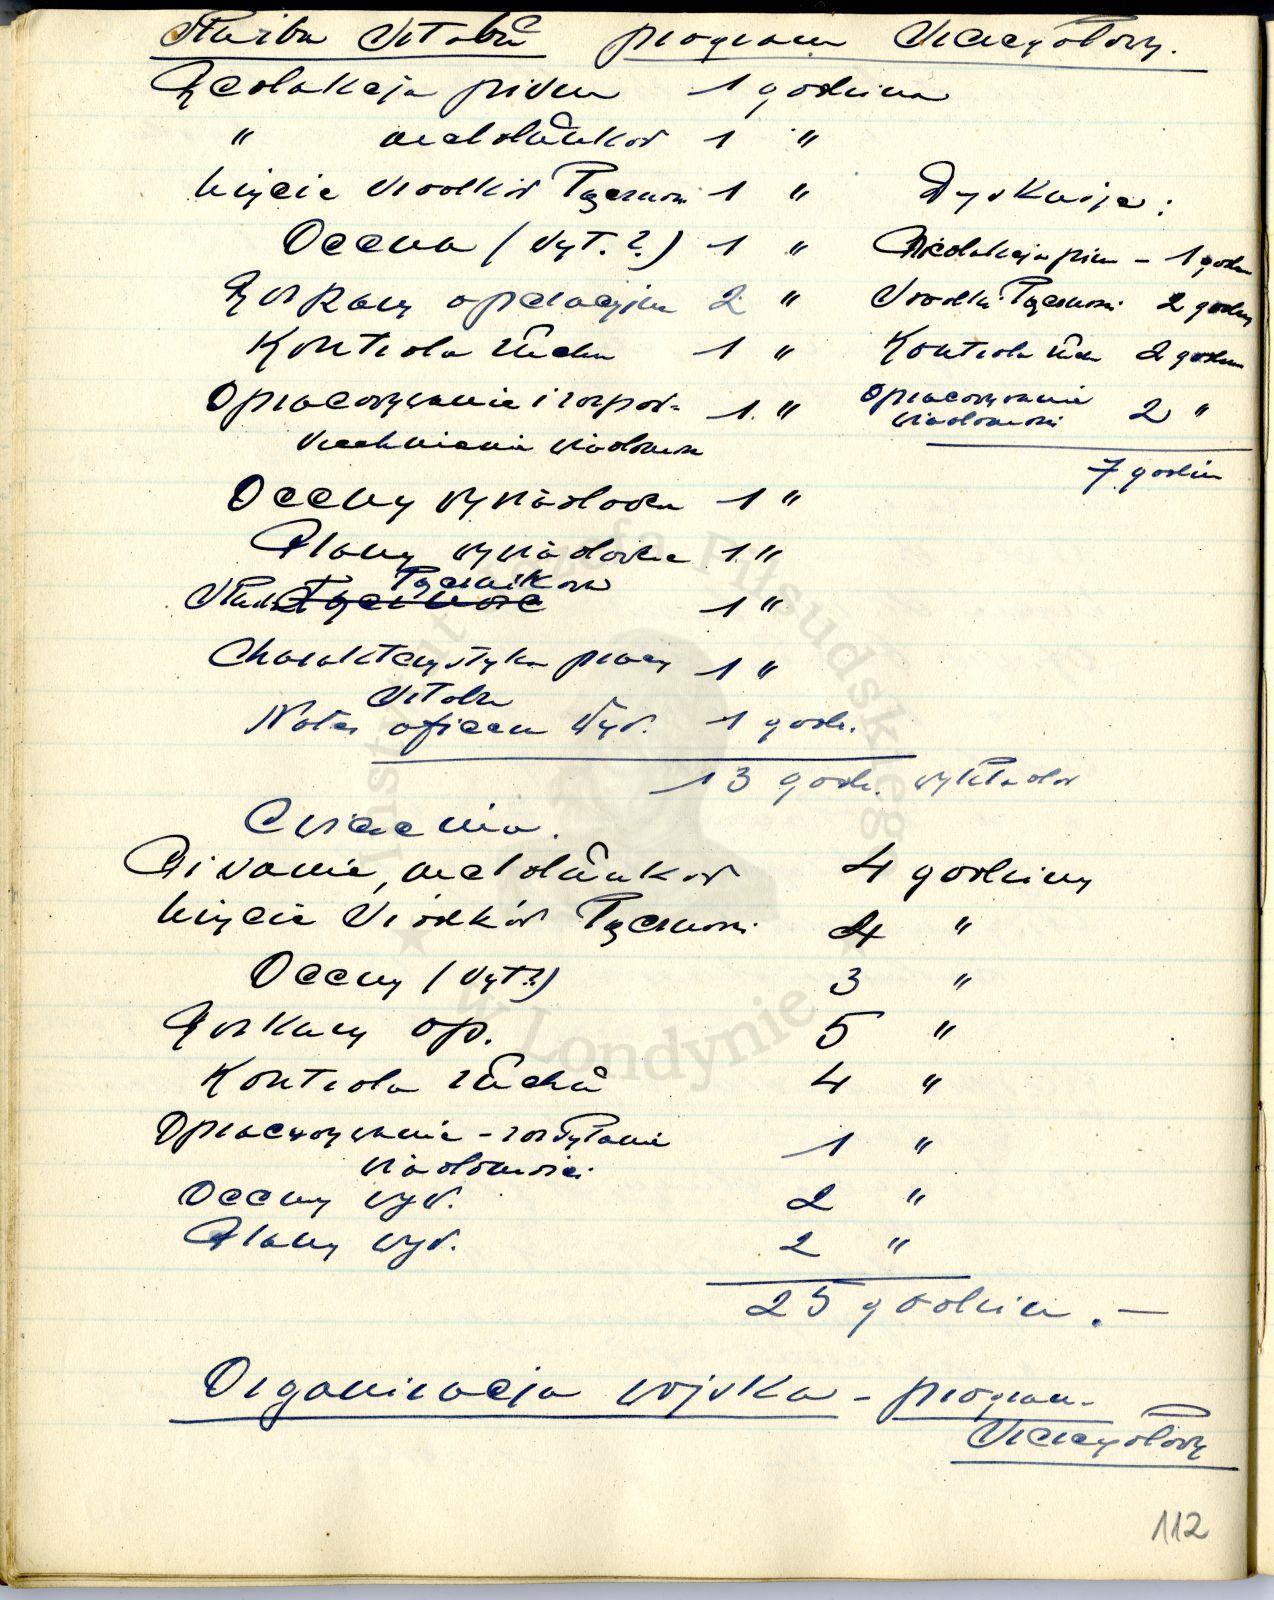 Służba Sztabu program szczegółowy.
Redakcja pism 1 godzina
" meldunków 1 "
Użycie środków łączności 1 " Dyskusje:
Ocena (syt. ?) 1 " Redakcja pism – 1 godz
Rozkazy operacyjne 2 " Środki łączności 2 godziny
Kontrola ruchu 1 " Kontrola ruchu 2 godzin
Opracowywanie i rozpow- 1. " Opracowywanie 2 "
szechnianie wiadomości wiadomości
7 godzin
Oceny wywiadowcze 1 "
Plany wywiadowcze 1. "
łączników
Służba łączność 1 "
Charakterystyka pracy 1 "
sztabu
Notes oficera wyw. 1 godz.
13 godz. wykładów
Ćwiczenia.
Pisanie, meldunków 4 godziny
Użycie środków łączności 4 "
Oceny (syt?) 3 "
Rozkazy op. 5 "
Kontrola ruchu 4 "
Opracowywanie – rozsyłanie 1 "
wiadomości
Oceny wyw. 2 "
Plany wyw. 2 "
25 godzin . —
Organizacja wojska – program
szczegółowy
112
Instytut Józefa Piłsudskiego
w Londynie